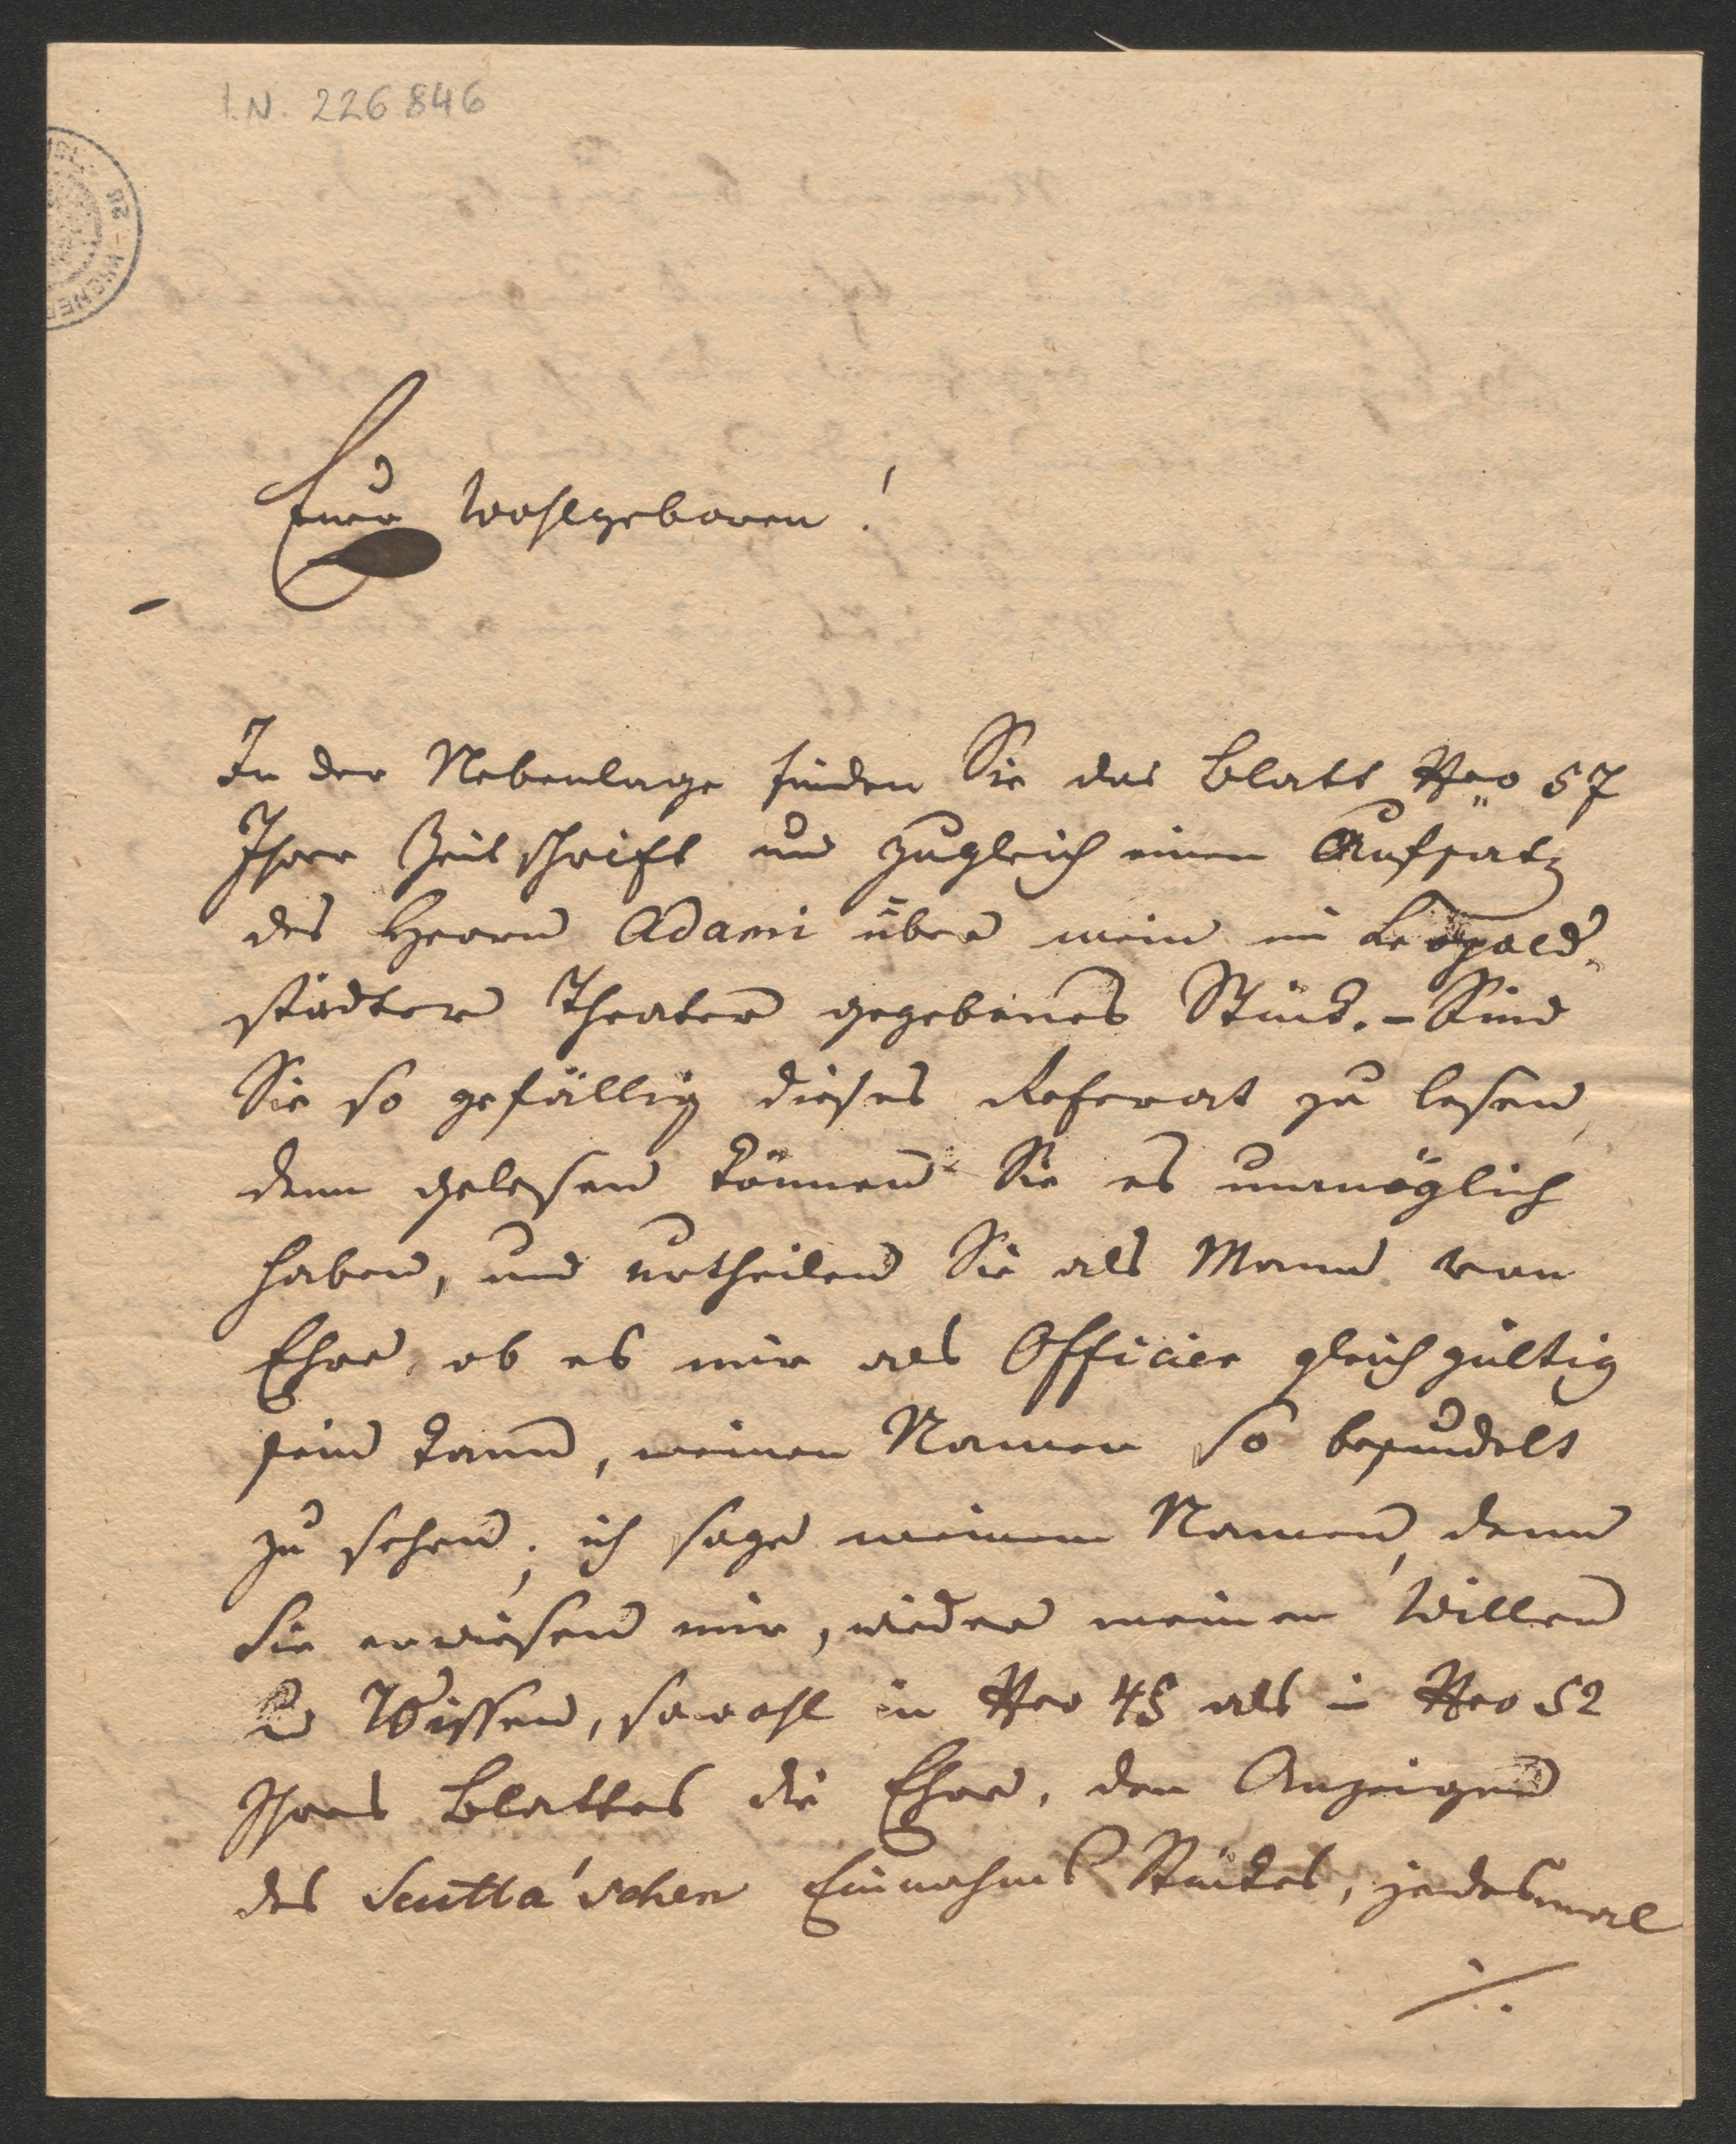 I.N. 226.846
Euer Wohlgeboren!
In der Nebenlage finden Sie das Blatt Nro 57
Ihrer Zeitschrift und zugleich einen Aufsatz
des Herrn Adami über mein im Leopold-
städter Theater gegebenes Stück. – Sind
Sie so gefällig dieses Referat zu lesen,
denn gelesen können Sie es unmöglich
haben, und urtheilen Sie als Mann von
Ehre, ob es mir als Officier gleichgültig
sein kann, meinen Namen so besudelt
zu sehen; ich sage meinen Namen, denn
Sie erwiesen mir, wieder meinen Willen
u Wissen, sowohl in Nro 48 als in Nro 52
Ihres Blattes die Ehre, den Anzeigen
des Scutta'schen Einnahms Stückes, jedesmal
./.